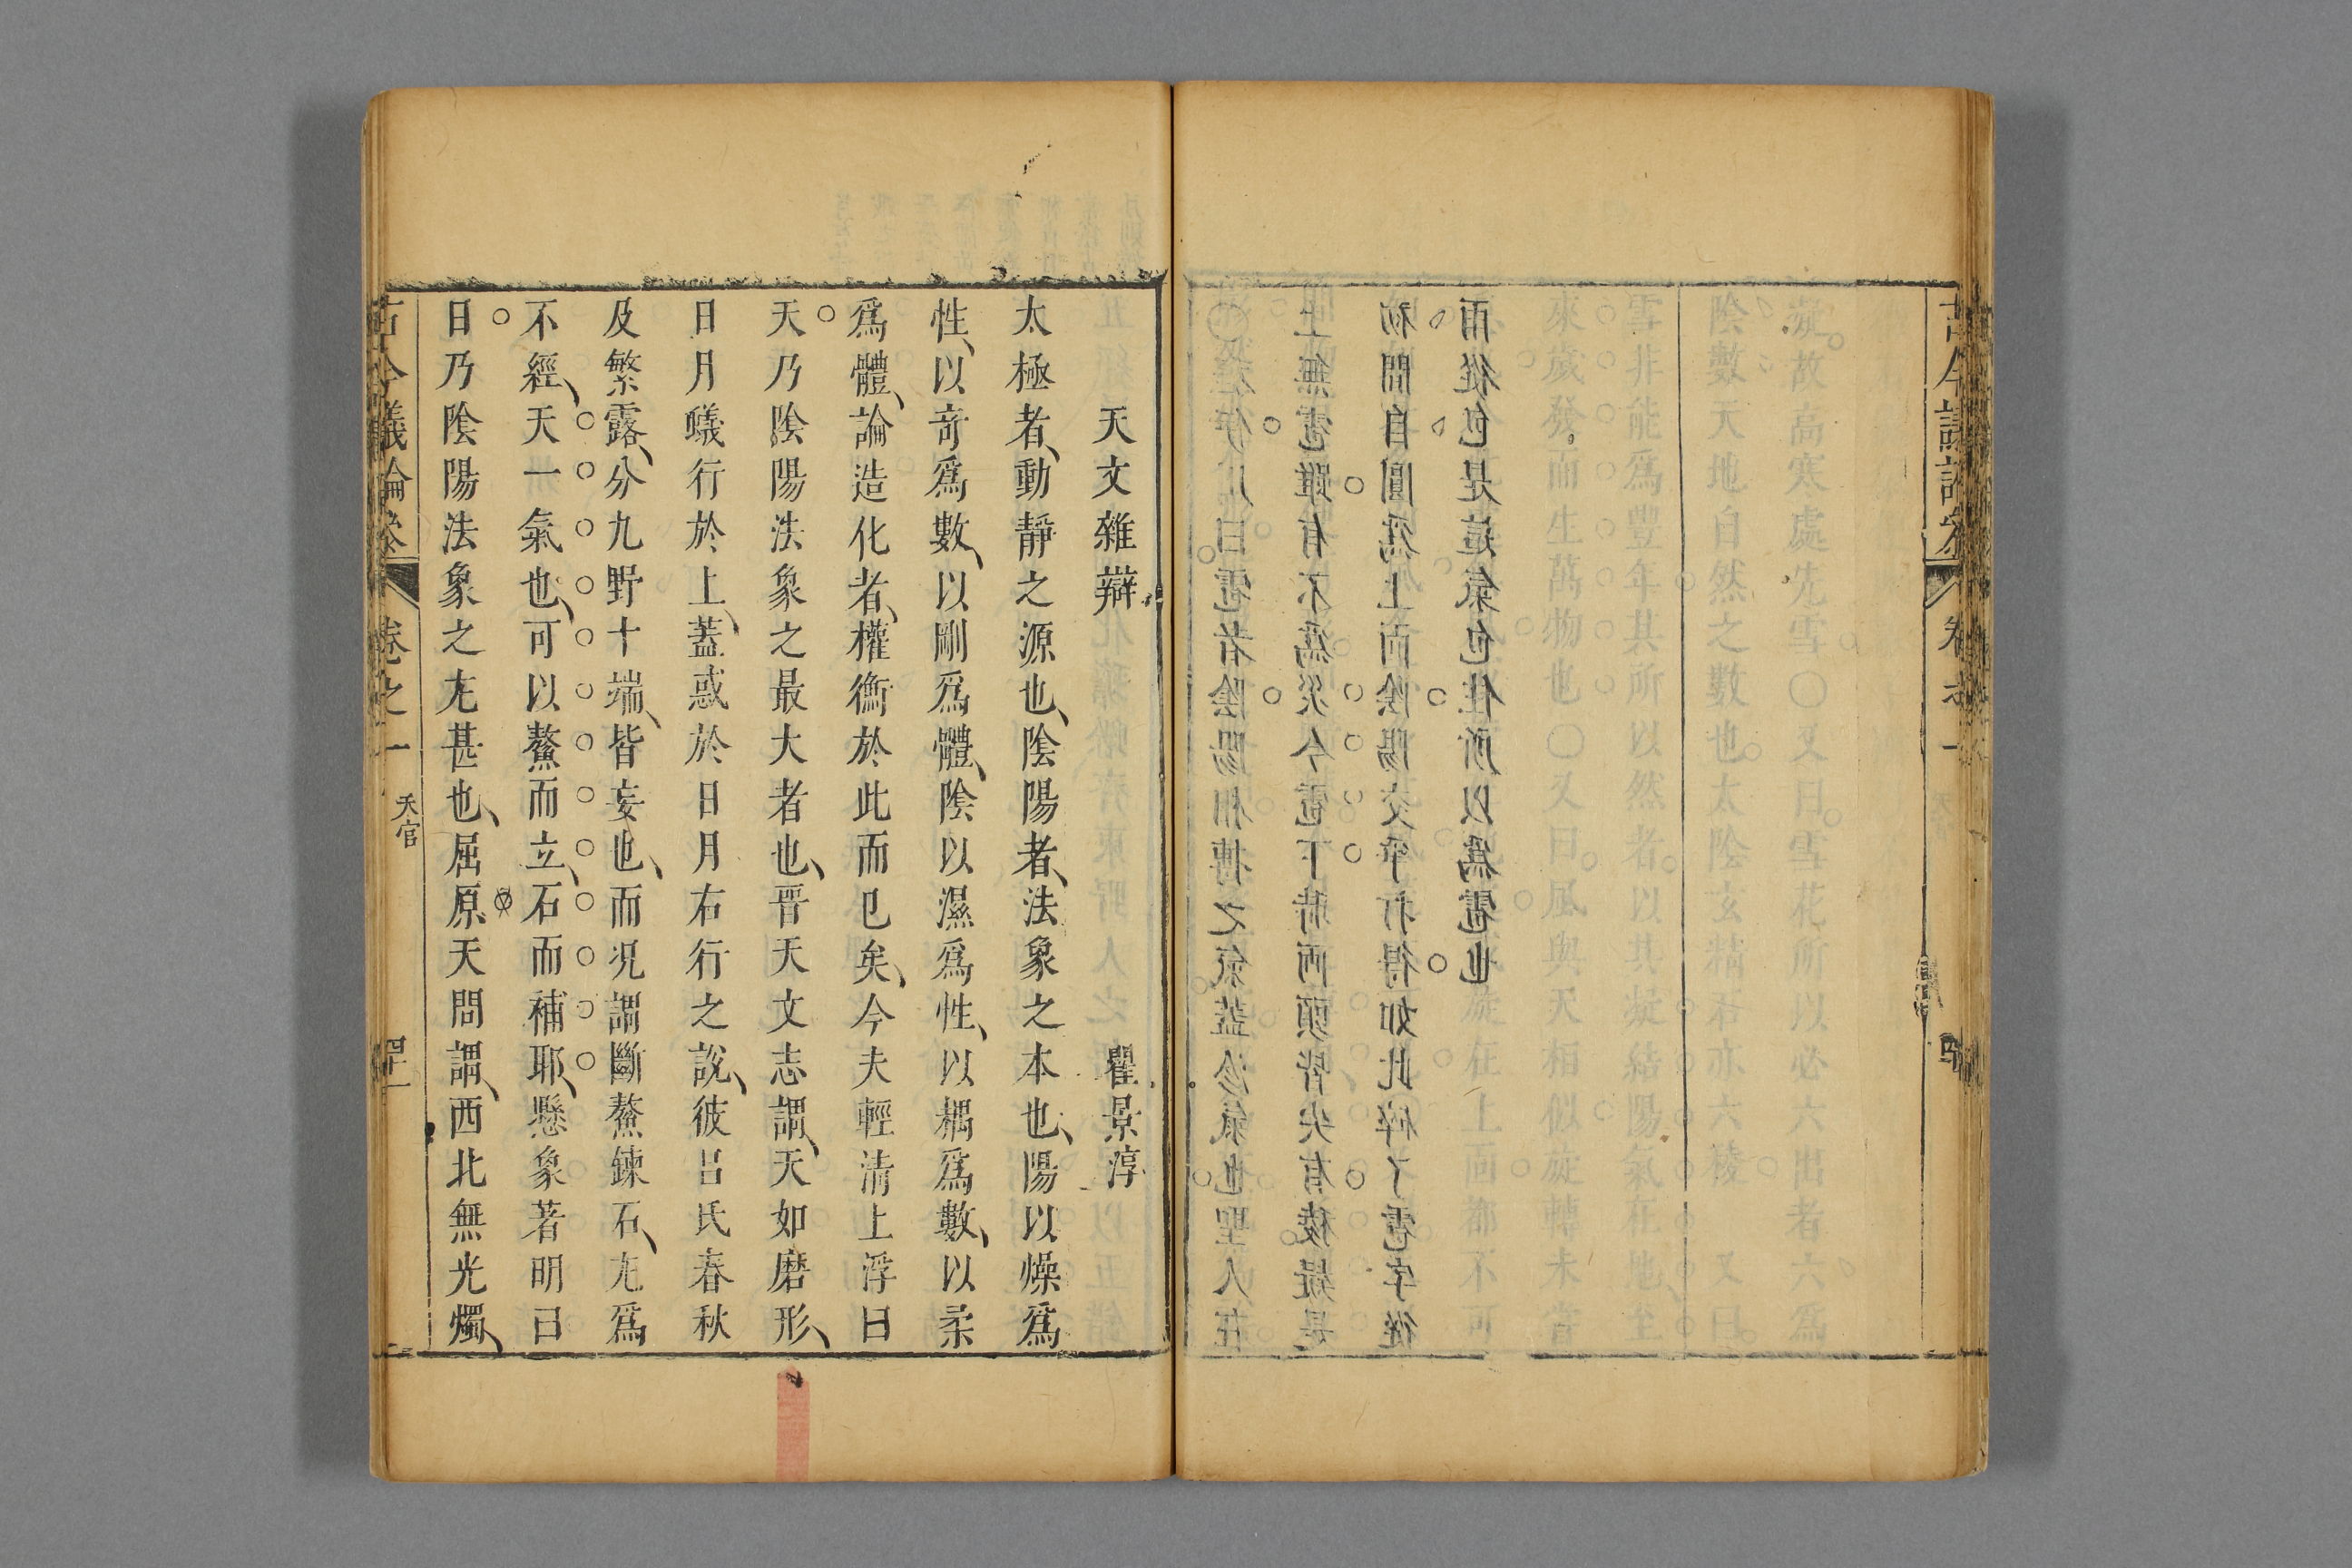 古今議論參
凝故高寒處先雪○又曰雪花所以必六出者六爲
陰數天地自然之數也太陰玄精石亦六稜 又曰
雪非能爲豐年其所以然者以其凝結陽氣在地至
來歲發而生萬物也○又曰風與天相似旋轉未嘗
旋在上面都不可
○程伊川曰雹者陰陽相搏之氣蓋沴氣也聖人在
上無雹雖有不爲災今雹下時兩頭皆尖有稜疑是
初間自圓爲上面陰陽交爭打得如此碎了雹字從
雨從包是這氣包住所以爲雹也
天文雜辯 瞿景淳
太極者、動靜之源也、陰陽者、法象之本也、陽以燥爲
性、以奇爲數、以剛爲體、陰以濕爲性、以耦爲數、以柔
爲體、論造化者、權衡於此而已矣、今夫輕清上浮曰
天乃陰陽法象之最大者也、晉天文志謂、天如磨形、
日月蟻行於上、蓋惑於日月右行之說、彼呂氏春秋
及繁露、分九野十端、皆妄也、而况謂斷鰲鍊石、尤爲
不經、天一氣也、可以鰲而立、石而補耶、懸象著明曰
日乃陰陽法象之尤甚也、屈原天問謂、西北無光燭、
古今議論參 卷之一 天官 四十一